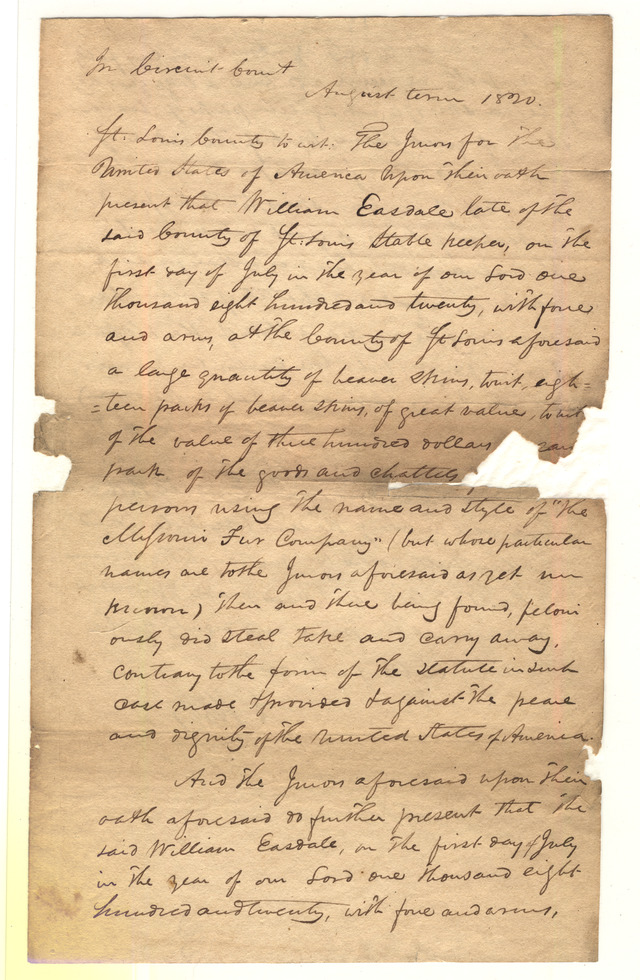 In Circuit Court
August term 1820.
St. Louis County to wit: The Jurors for the
United States of America upon their oath
present that William Easdale late of the
said County of St. Louis Stable keeper, on the
first day of July in the year of our Lord one
thousand eight hundred and twenty, with force
and arms, at the County of St Louis aforesaid
a large quantity of beaver skins, towit, eigh=
=teen packs of beaver skins, of great value, towit
of the value of three hundred dollars each
pack of the goods and chattels
persons using the name and style of "the
Missouri Fur Company" (but whose particular
names are to the Jurors aforesaid as yet un
known) then and there being found, feloni
ously did steal take and carry away,
contrary to the form of the statute in such
case made & provided & against the peace
and dignity of the United States of America.
And the Jurors aforesaid upon their
oath aforesaid do further present that the
said William Easdale, on the first day of July
in the year of our Lord one thousand eight
hundred and twenty, with force and arms,